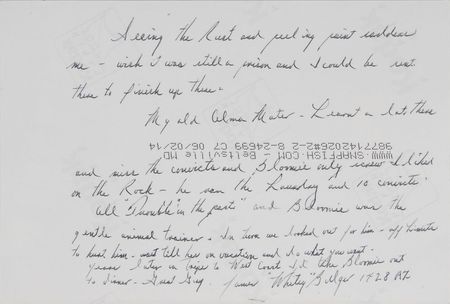 Seeing the Rust and peeling paint saddens
me – wish I was still a prison and I could be sent
there to finish up there.
My old Alma Mater – Learnt a lot there
WWW.SNAPFISH.COM - Beltsville MD
9877142026#2-2-8-24699 CT 06/02/14
and miss the convicts and Bloomie only screw I liked
on the Rock – he ran the Laundry and 10 convicts.
all "Trouble" in the past" and Bloomie was the
gentle animal trainer. In turn we looked out for him – off limits
to hurt him – wait till he's on vacation and do what you want.
Years later in trips to West Coast I'd take Bloomie out
to dinner – Great Guy. Yours "Whitey" Bulger 1428 AZ